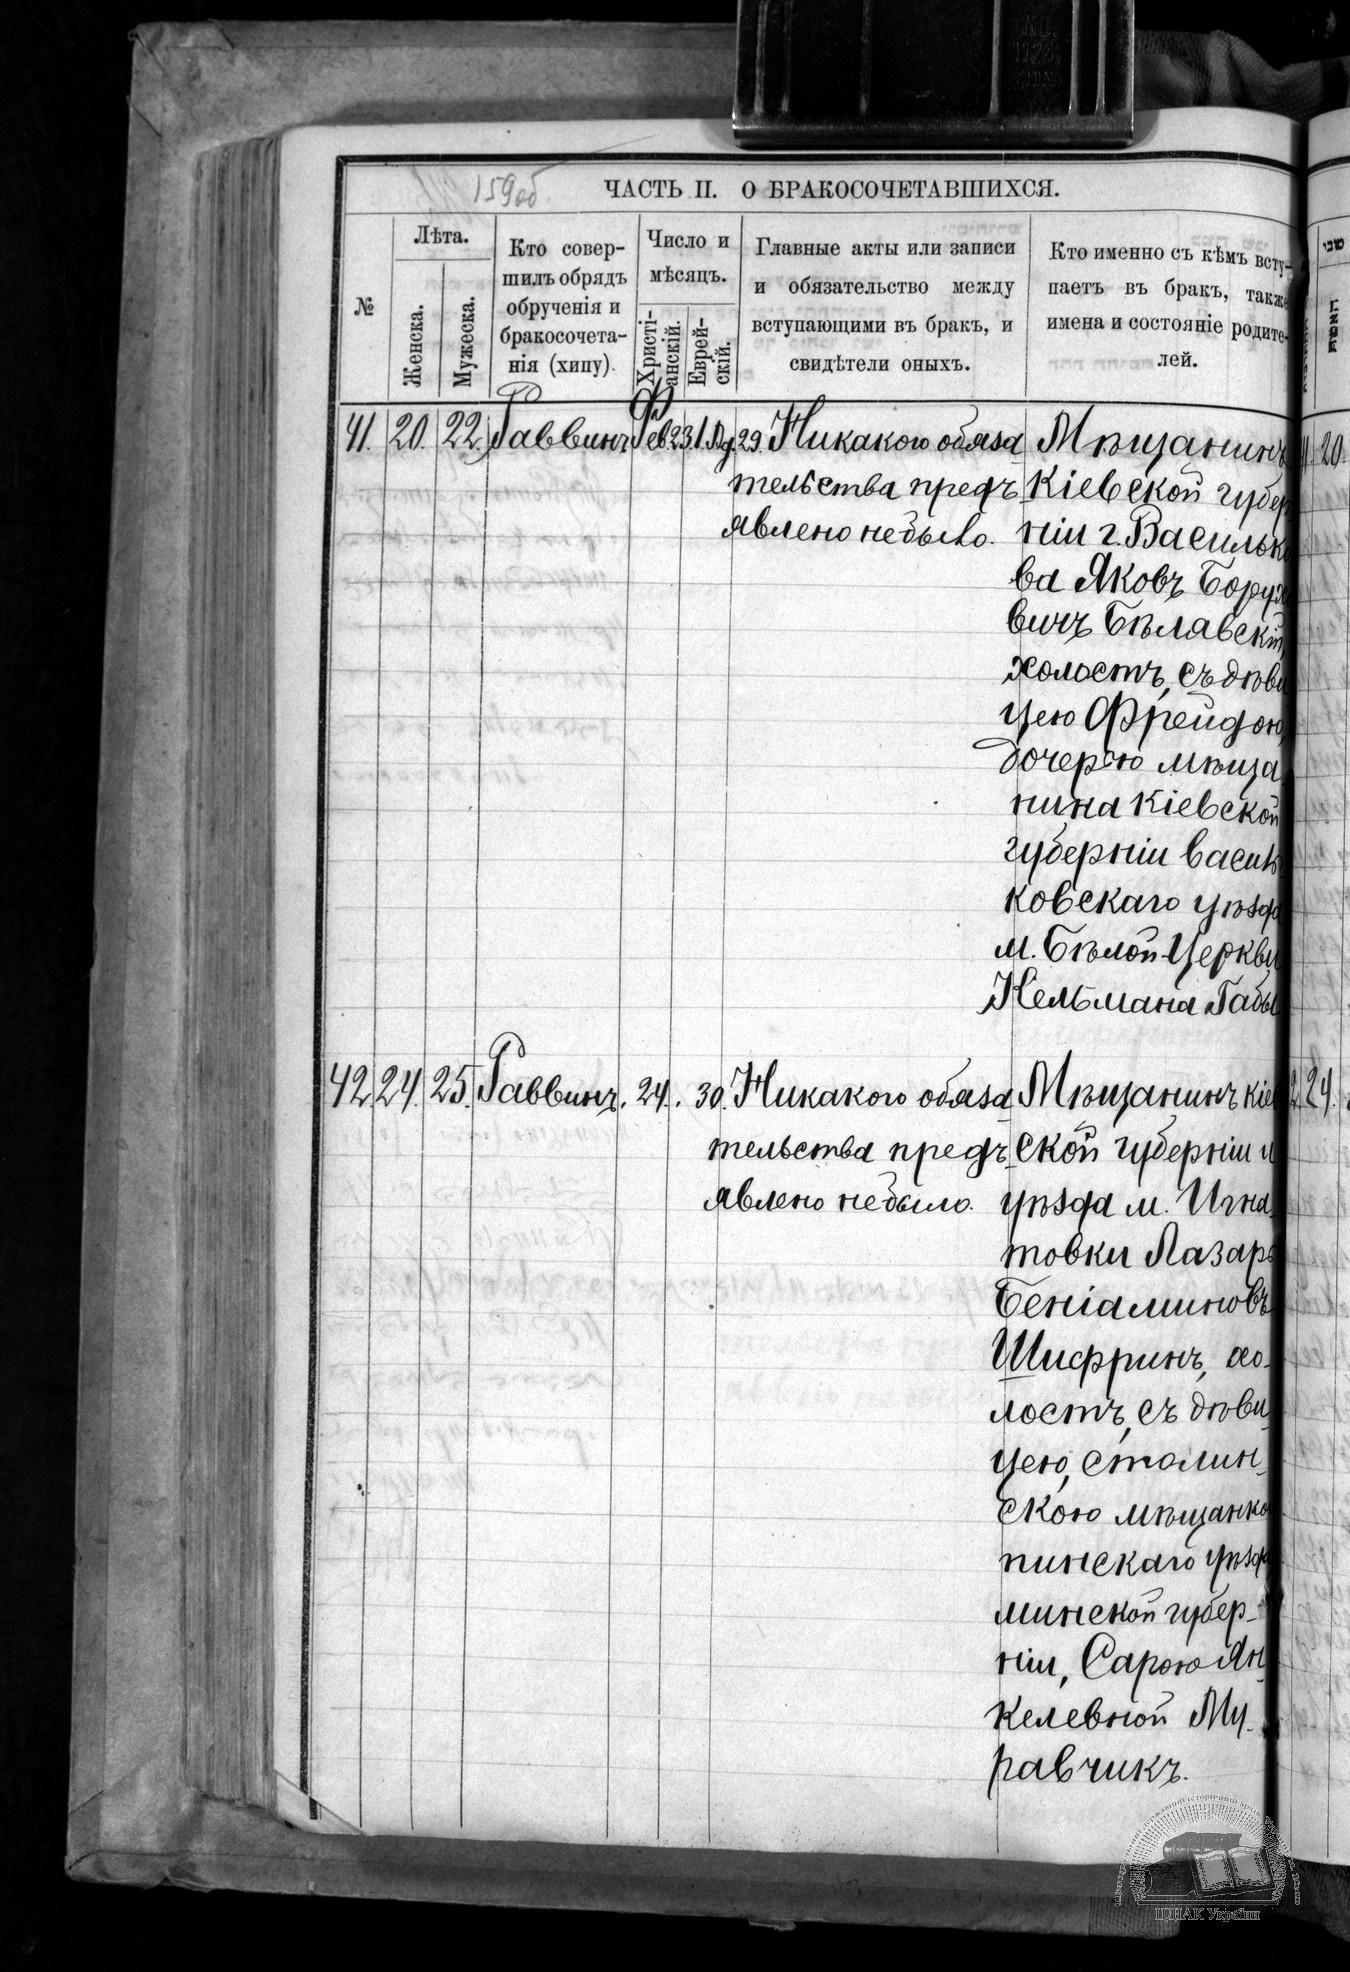 159об
ЧАСТЬ II. О БРАКОСОЧЕТАВШИХСЯ.
№
Лѣта.
Женска.
Мужеска.
Кто совер-
шилъ обрядъ
обрученія и
бракосочета-
нія (хипу).
Число и
мѣсяцъ.
Христі-
анскій.
Еврей-
скій.
Главные акты или записи
и обязательство между
вступающими въ бракъ, и
свидѣтели оныхъ.
Кто именно съ кѣмъ всту-
паетъ въ бракъ, также
имена и состояніе родите-
лей.
41. 20. 22. Раввинъ Фев. 23. 29. Никакого обяза
тельства предъ
явлено не было.
Мѣщанинъ
Кіевской губер
ніи г. Василько
ва Яковъ Борухо
вичъ Бѣлавскій,
холостъ, съ дѣви
цею Фрейдою,
дочерью мѣща
нина Кіевской
губерніи Василь
ковскаго уѣзда
м. Бѣлой-Церкви
Кельмана Габы
42. 24. 25. Раввинъ. 24. 30. Никакого обяза
тельства предъ
явлено не было.
Мѣщанинъ Кіев
ской губерніи и
уѣзда м. Игна
товки Лазарь
Беніаминовъ
Шифринъ, хо-
лостъ, съ дѣви
цею, столин-
скою мѣщанко
пинскаго уѣзда
минской губер-
ніи, Сарою Ян
келевной Му-
равчикъ.
שני
20.
24.
ЦНАК України